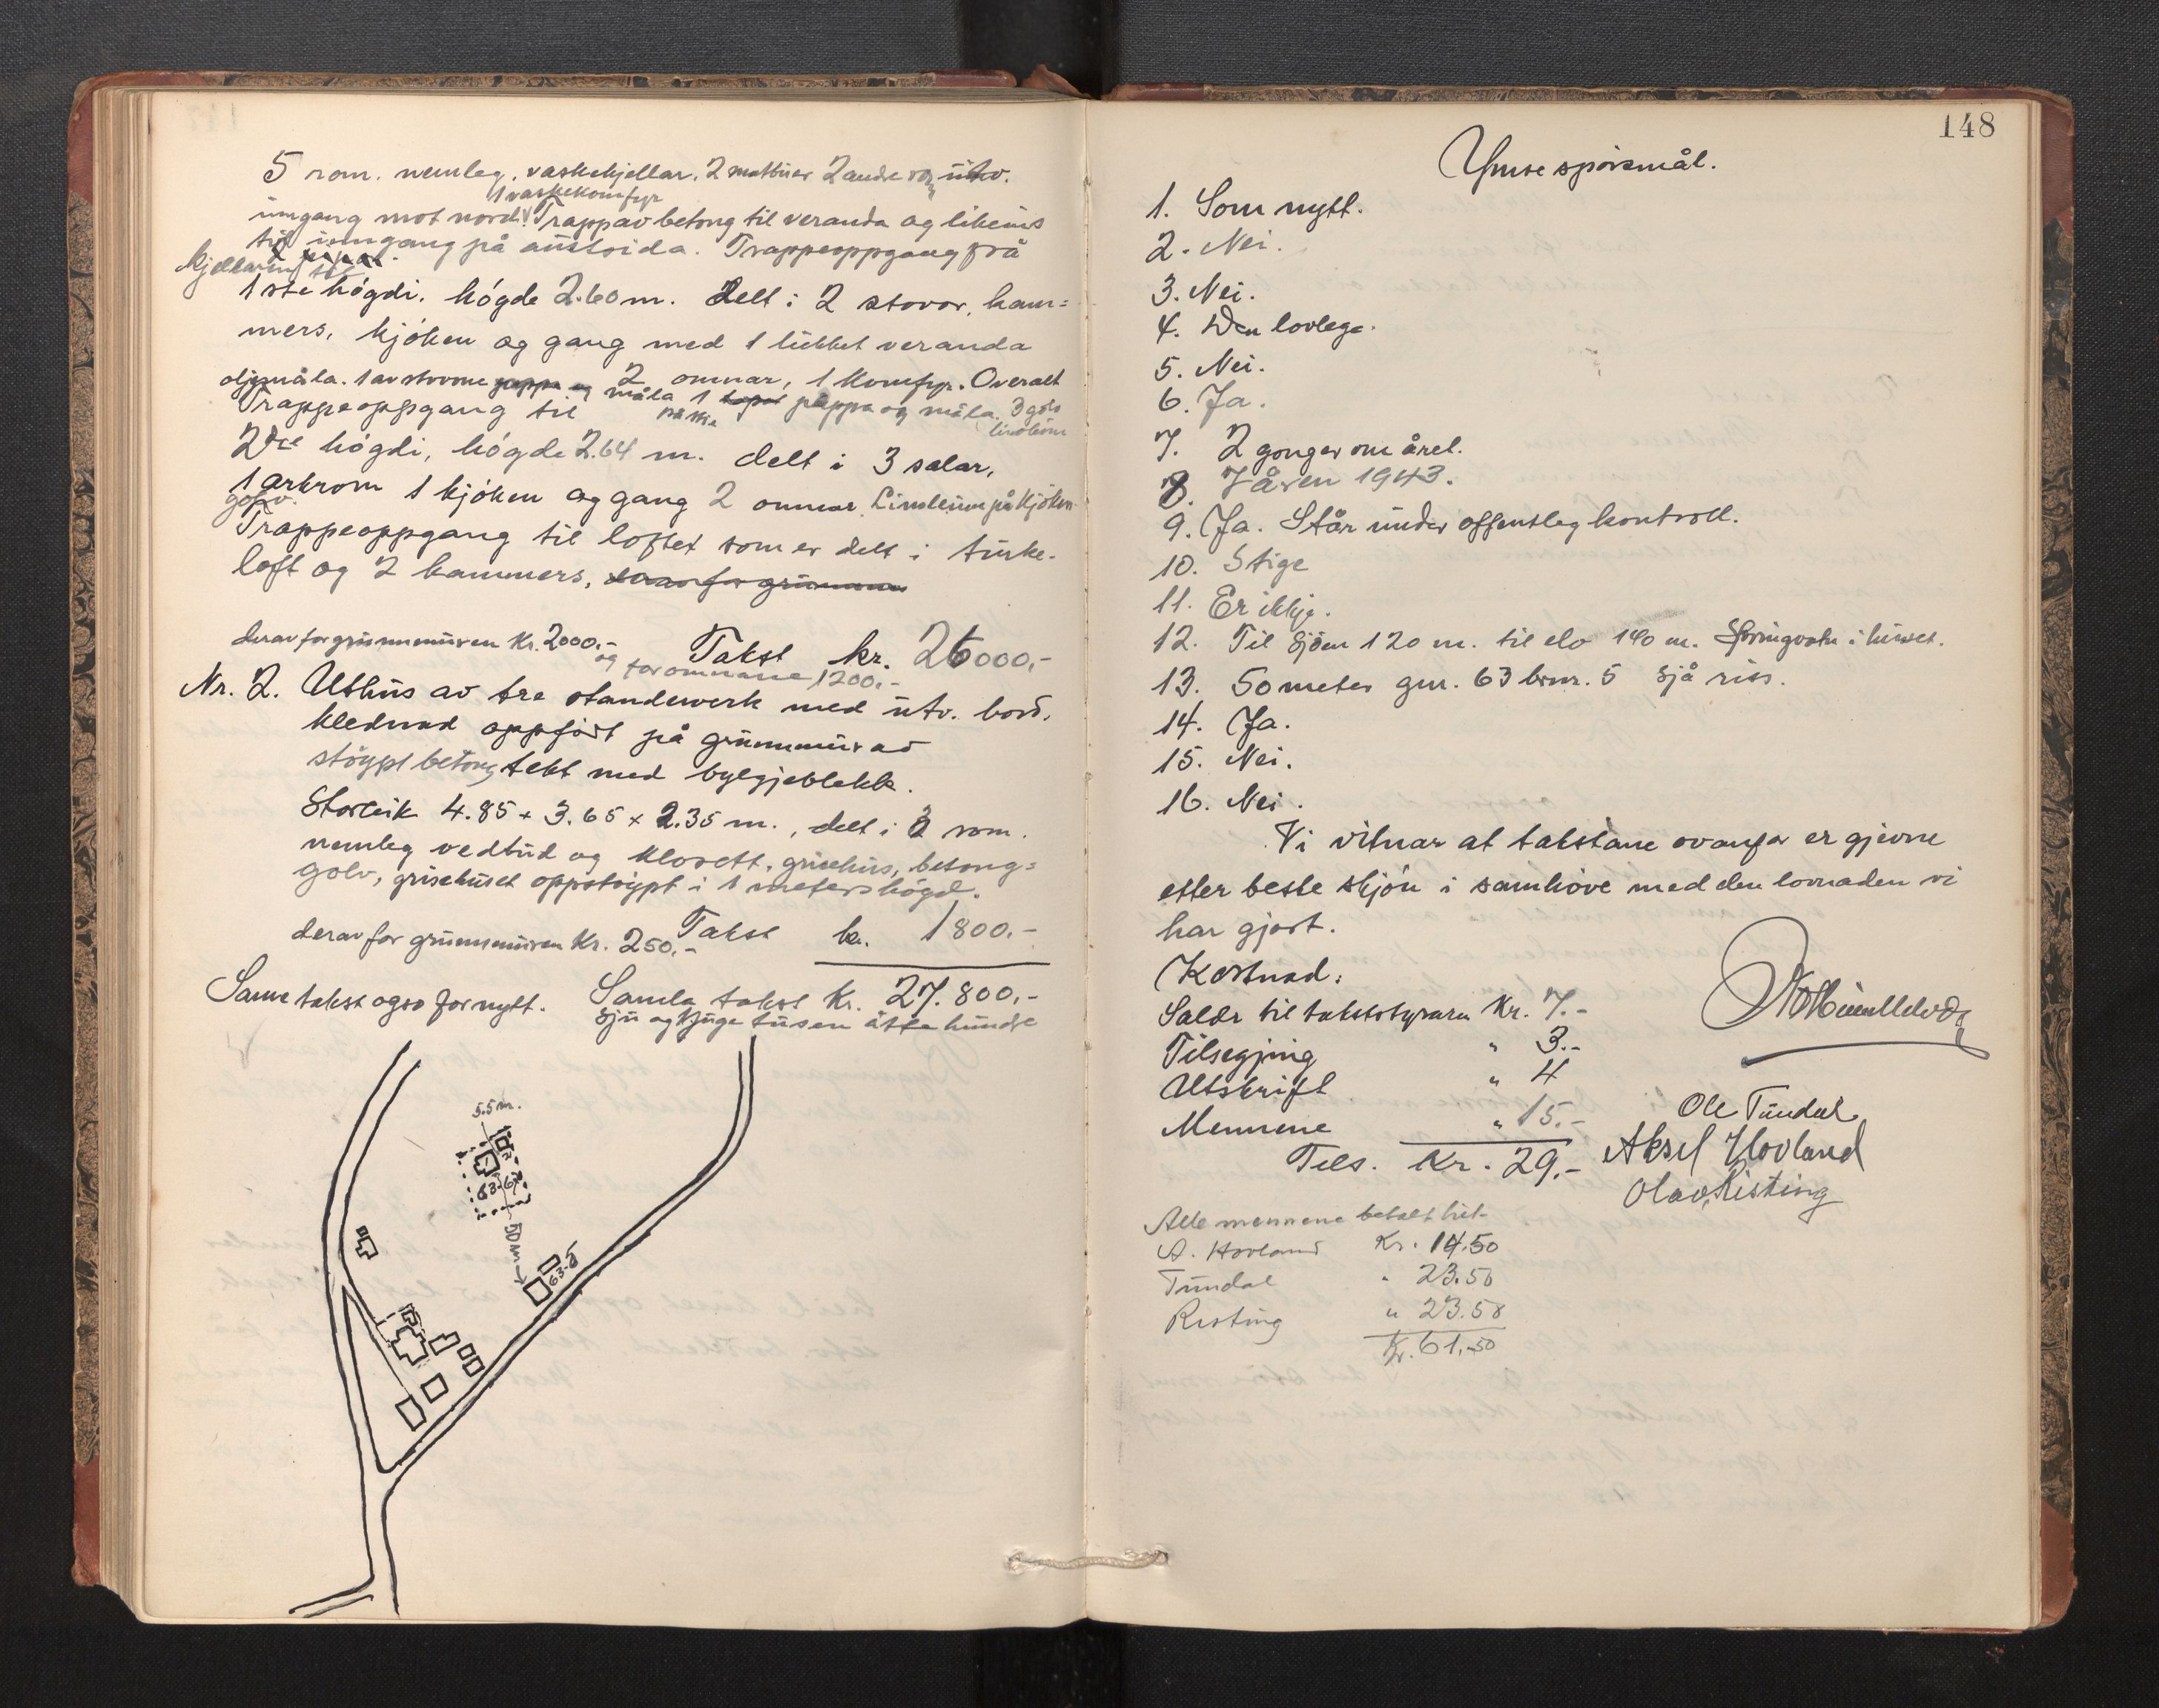 5 rom. nemleg, vaskekjellar, 2 matbuer 2 andre rom utv.
1 vaskekomfyr
inngang mot nord. Trapp av betong til veranda og likeins
til inngang på austsida. Trappeoppgang frå
kjellaren til
1ste högdi, högde 2.60 m. delt i 2 stovor, kam=
mers, kjöken og gang med 1 lukket veranda
2 omnar, 1 komfyr. Overalt
oljemåla. 1 av stovone pappa og måla 1 tapet pappa og måla. 3 golv
linoleum
Trappeoppgang til
2dre högdi, högde 2.64 m. delt i 3 salar,
1 arkrom 1 kjöken og gang 2 omnar. Linoleum på kjöken
golv.
Trappeoppgang til loftet som er delt i turke-
loft og 2 kammers, derav for grunnmuren
derav for grunnmuren Kr. 2000.-
og for omnane 1200.-
Takst kr. 26000,-
Nr. 2. Uthus av tre standewerk med utv. bord.
klednad oppfört på grunnmur av
stöypt betong, tekt med bylgjeblekk.
Storleik 4.85 x 3.65 x 2.35 m., delt i 3 rom.
nemleg vedbud og klosett, grisehus, betong=
golv, grisehuset oppstöypt i 1 meters högd.
derav for grunnmuren Kr. 250.-
Takst kr. 1800.-
Same takst ogso for nytt.
Samla takst Kr. 27.800,-
Sju og tjuge tusen åtte hundre
5.5 m.
63-67
50 m
63-5
148
Ymse spörsmål.
1. Som nytt.
2. Nei.
3. Nei.
4. Den lovlege.
5. Nei.
6. Ja.
7. 2 gonger om året.
8. I åren 1943.
9. Ja. Står under offentleg kontroll.
10. Stige
11. Er ikkje.
12. Til sjöen 120 m. til elv 140 m. Springvatn i huset.
13. 50 meter gnr. 63 brnr. 5 sjå riss.
14. Ja.
15. Nei.
16. Nei.
Vi vitnar at takstane ovanfor er gjevne
etter beste skjön i samhöve med den lovnaden vi
har gjort.
Kostnad:
Salær til takststyraren Kr. 7.-
Tilsegjing " 3.-
Utskrift " 4
Mennene " 15.-
Tils. Kr. 29.-
Ole Tundal
Aksel Hovland
Olav Risting
Alle mennene betalt hit-
A. Hovland Kr. 14.50
Tundal " 23.50
Risting " 23.50
Kr. 61.50